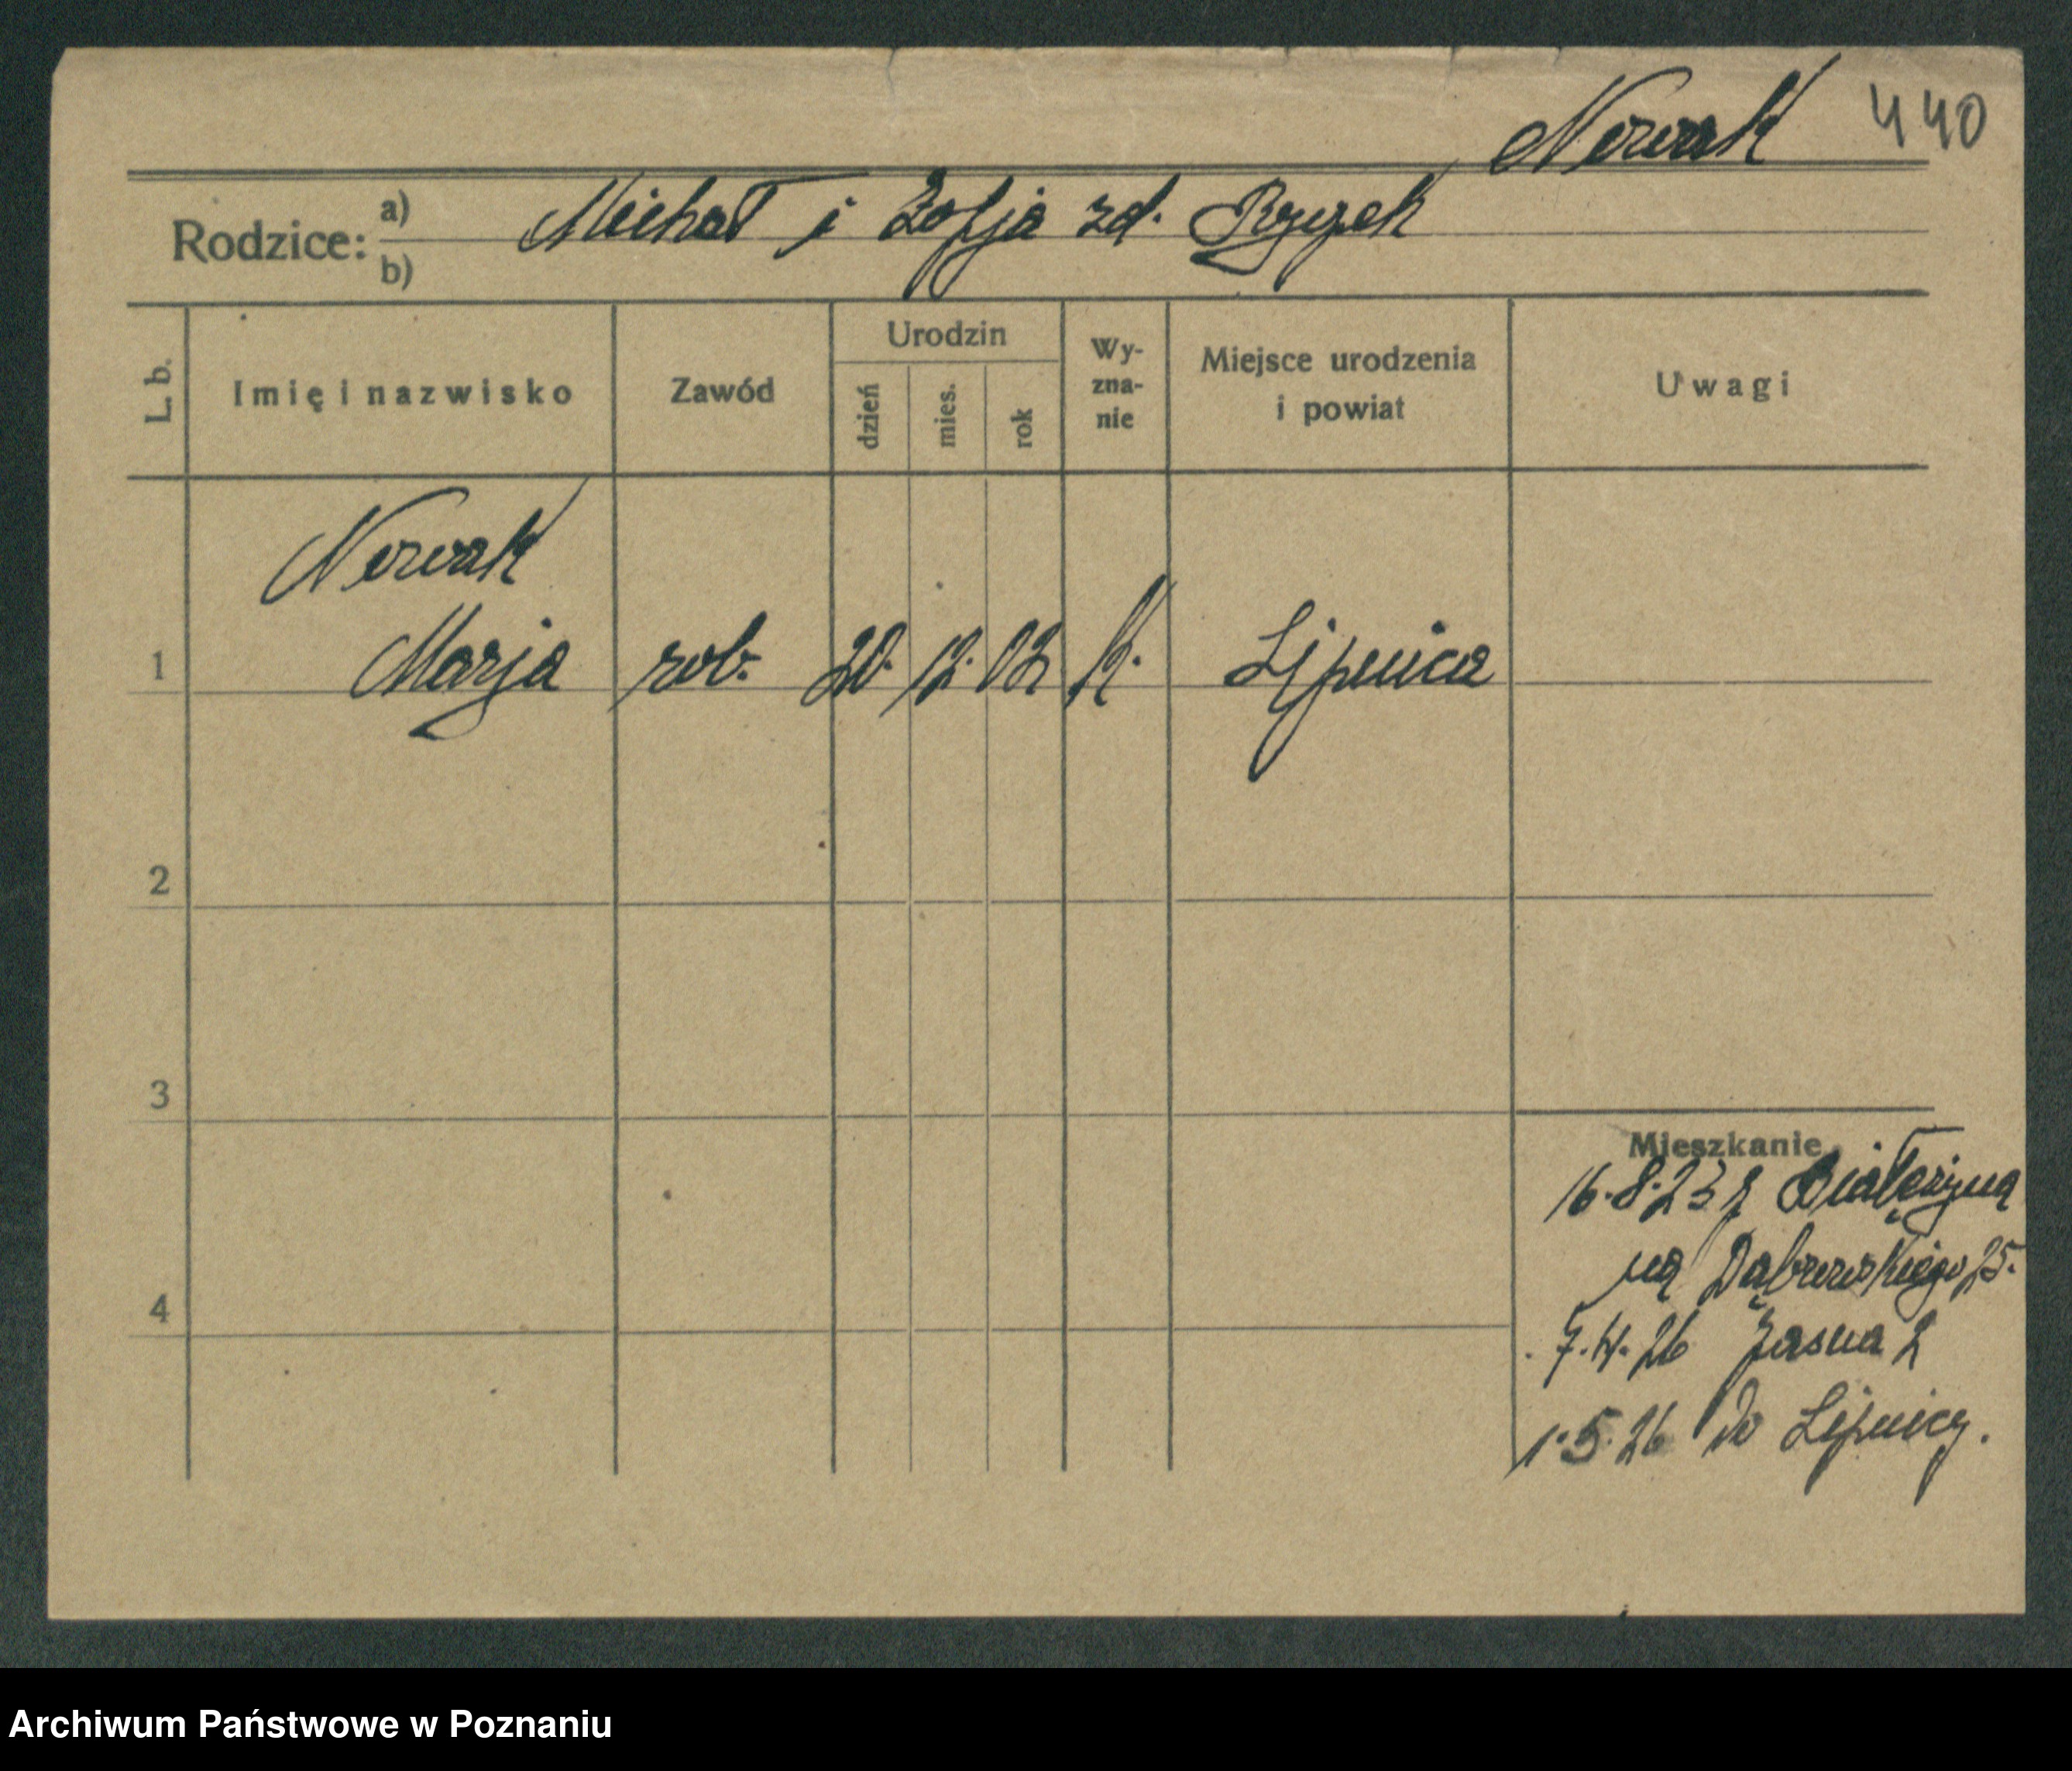 Nowak 440
Rodzice: a) Michał i Zofja zd.
b)
L. b. Imię i nazwisko Zawód Urodzin dzień mies. rok Wy-zna-nie Miejsce urodzenia i powiat Uwagi
Nowak
1 Marja rob. 20. 12. 02 k. Lipnica
2
3
Mieszkanie
16.8.23 z
na Dąbrowskiego 25.
4
7.4.26 Jasna 2
1.5.26 do Lipnicy.
Archiwum Państwowe w Poznaniu